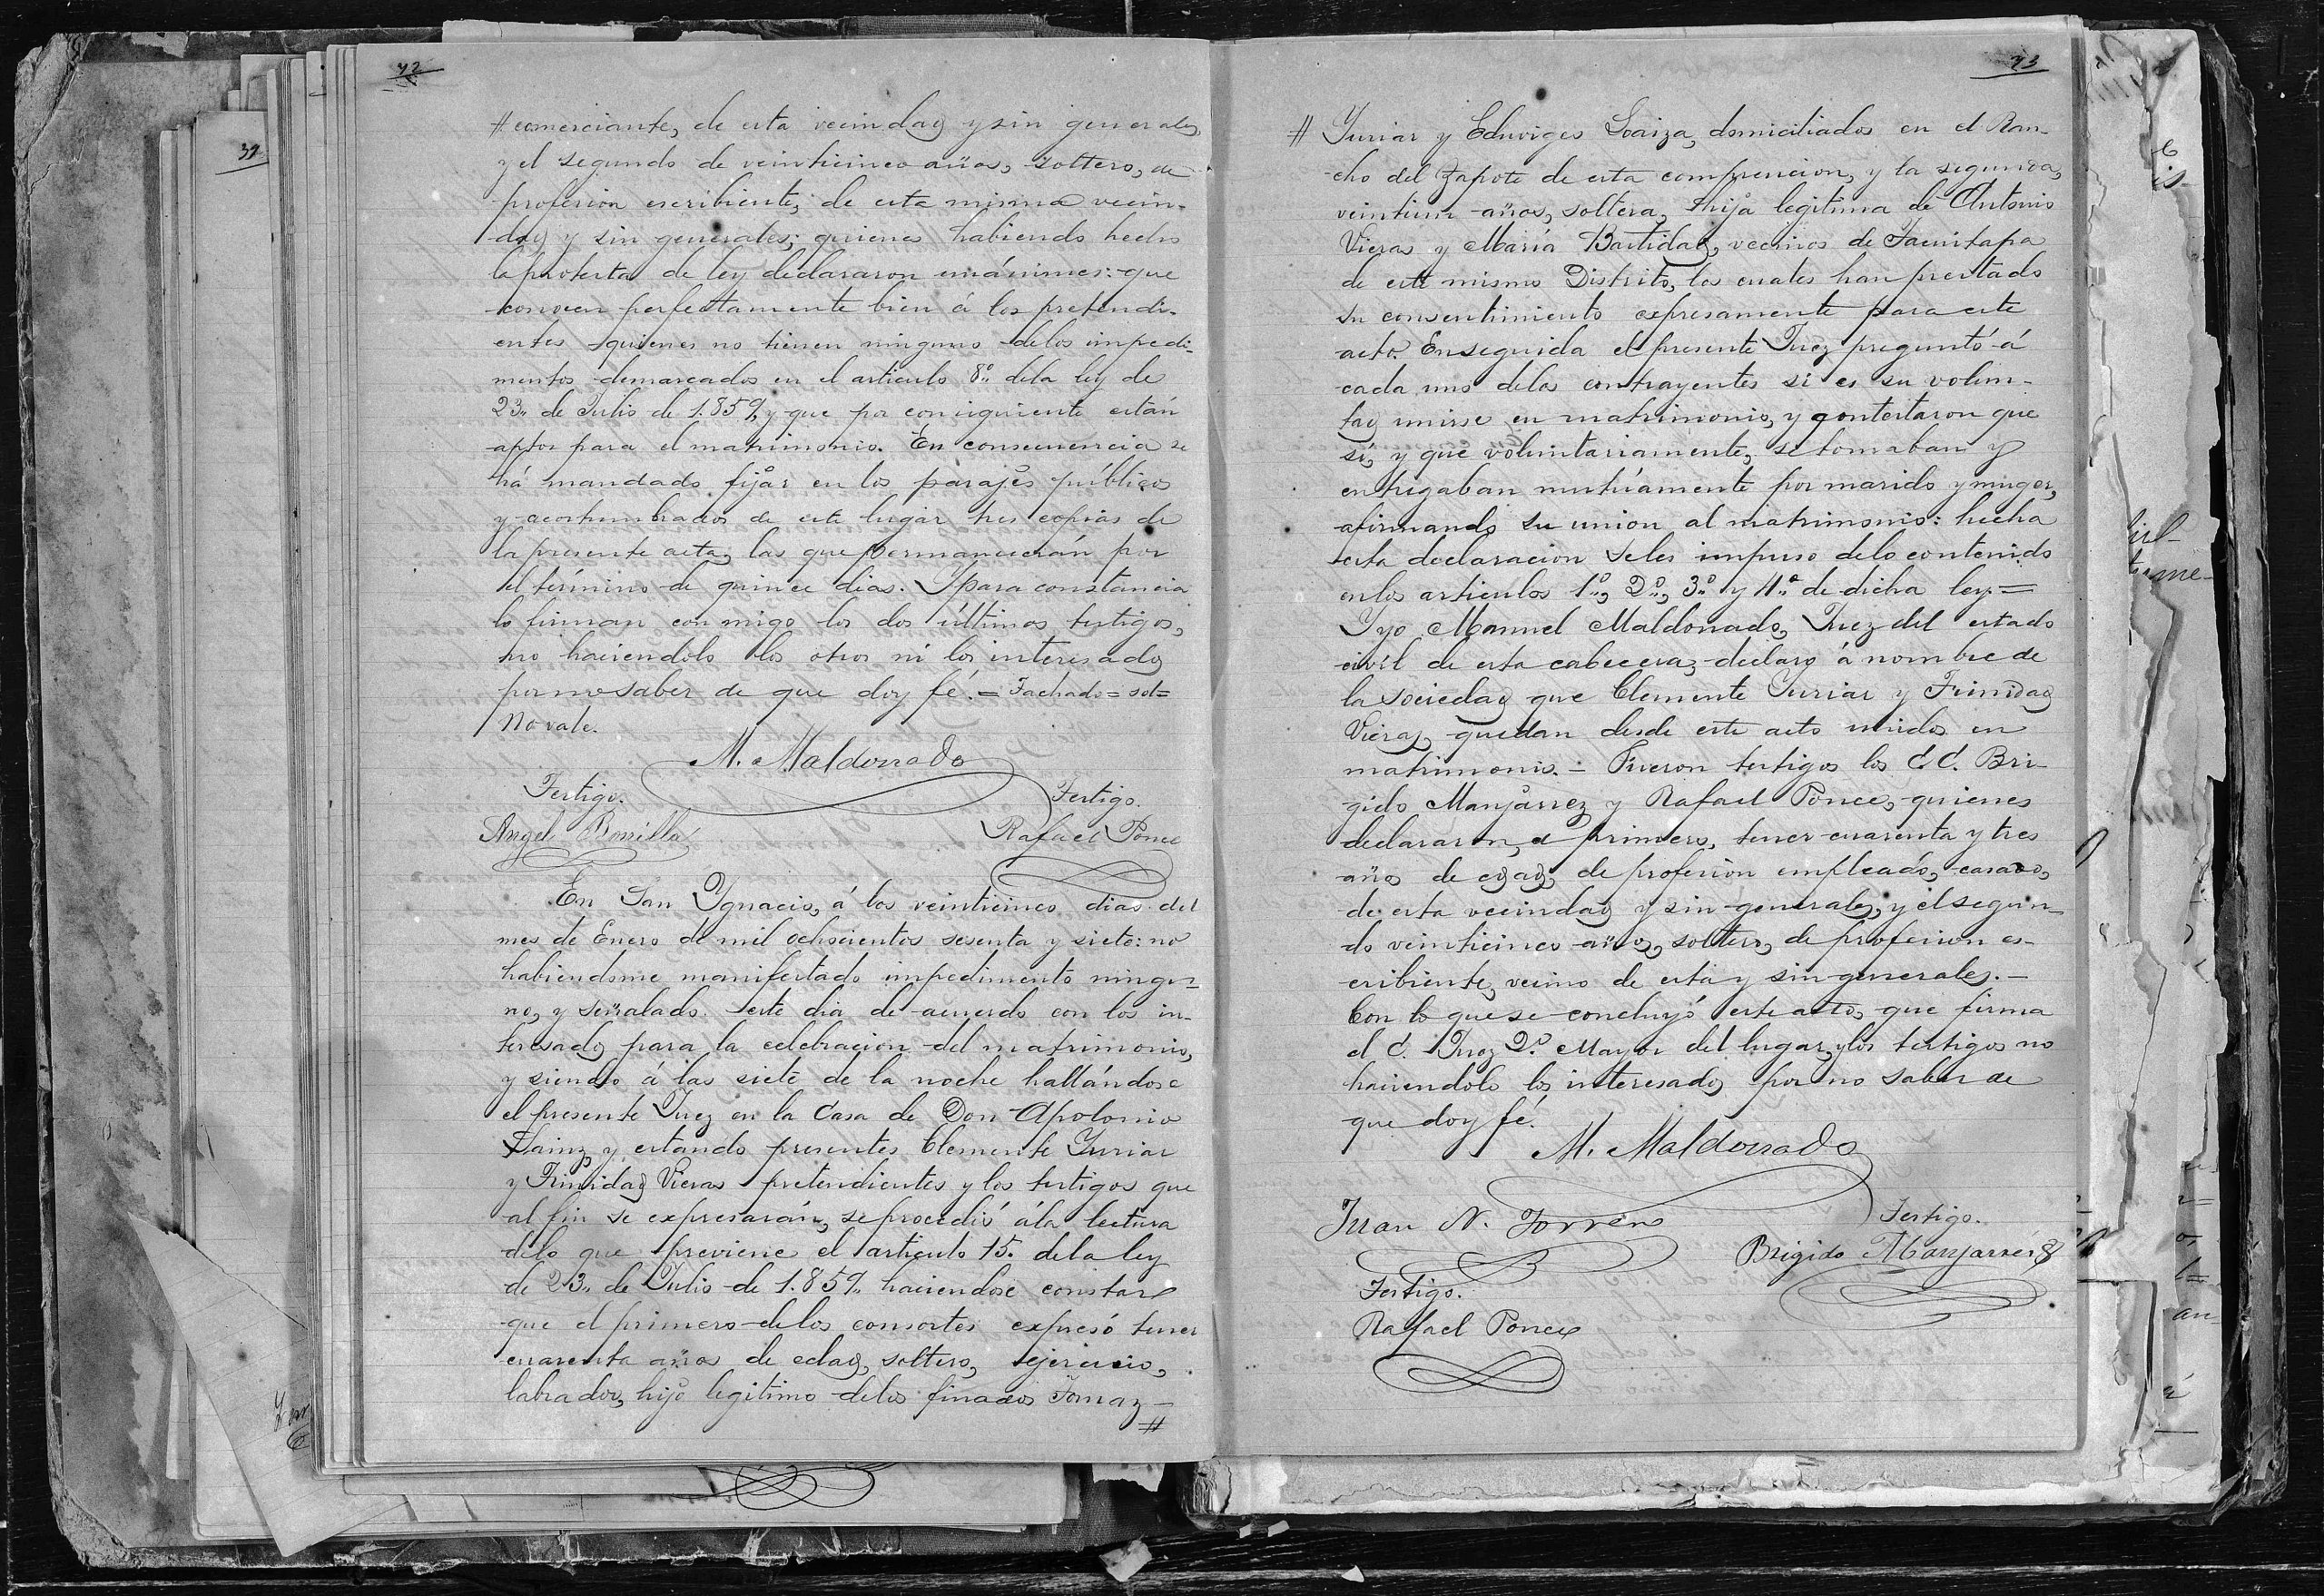 72
# comerciante, de esta vecindad y sin generales,
y el segundo de veinticinco años, soltero, de
profesion escribiente, de esta misma vecin-
dad y sin generales; quienes habiendo hecho
la protesta de ley declararon unánimes: que
conocen perfectamente bien á los pretendi-
entes quienes no tienen ninguno de los impedi-
mentos demarcados en el articulo 8º de la ley de
23,, de Julio de 1.859, y que por consiguiente están
aptos para el matrimonio. En consecuencia se
há mandado fijar en los parajes públicos
y acostumbrados de este lugar tres copias de
la presente acta, las que permanecerán por
el término de quince dias. Y para constancia
lo firman conmigo los dos últimos testigos,
no haciendolo los otros ni los interesados
por no saber de que doy fé. = Tachado = sol =
No vale.
M. Maldonado
Testigo. Testigo.
Angel Bonilla Rafael Ponce
En San Ygnacio, á los veinticinco dias del
mes de Enero de mil ochocientos sesenta y siete: no
habiendome manifestado impedimento ningu-
no, y señalado este dia de acuerdo con los in-
teresados para la celebracion del matrimonio,
y siendo á las siete de la noche hallándose
el presente Juez en la Casa de Don Apolonio
Sainz y estando presentes Clemente Yuriar
y Trinidad Vieras pretendientes y los testigos que
al fin se expresarán, se procedió á la lectura
de lo que previene el articulo 15. de la ley
de 23,, de Julio de 1.859,, haciendose constar
que el primero de los consortes expresó tener
cuarenta años de edad, soltero, ejercicio,
labrador, hijo legitimo de los finados Tomaz -
#
73
# Yuriar y Eduviges Loaiza, domiciliados en el Ran-
cho del Zapote de esta comprencion, y la segunda,
veintiun años, soltera, hija legitima de Antonio
Vieras y María Bastidas, vecinos de Tacuitapa
de este mismo Distrito, los cuales han prestado
su consentimiento expresamente para este
acto. Enseguida el presente Juez preguntó á
cada uno de los contrayentes si es su volun-
tad unirse en matrimonio, y contestaron que
sí, y que voluntariamente, se tomaban y
entregaban mutúamente por marido y muger,
afirmando su union al matrimonio: hecha
esta declaracion se les impuso de lo contenido
en los articulos 1º,, 2º,, 3º,, y 4º,, de dicha ley. =
Y yo Manuel Maldonado, Juez del estado
civil de esta cabecera, declaro á nombre de
la sociedad que Clemente Yuriar y Trinidad
Vieras, quedan desde este acto unidos en
matrimonio. - Fueron testigos los C.C. Bri-
gido Manjarrez y Rafael Ponce, quienes
declararon, el primero, tener cuarenta y tres
años de edad, de profesion empleado, casado,
de esta vecindad y sin generales, y el segun-
do veinticinco años, soltero, de profesion es-
cribiente, vecino de esta y sin generales. -
Con lo que se concluyó este acto, que firma
el C. Juez 2º. Mayor del lugar, y los testigos no
haciendolo los interesados por no saber de
que doy fé.
M. Maldonado
Juan N. Torren Testigo.
Brigido Manjarréz
Testigo.
Rafael Ponce